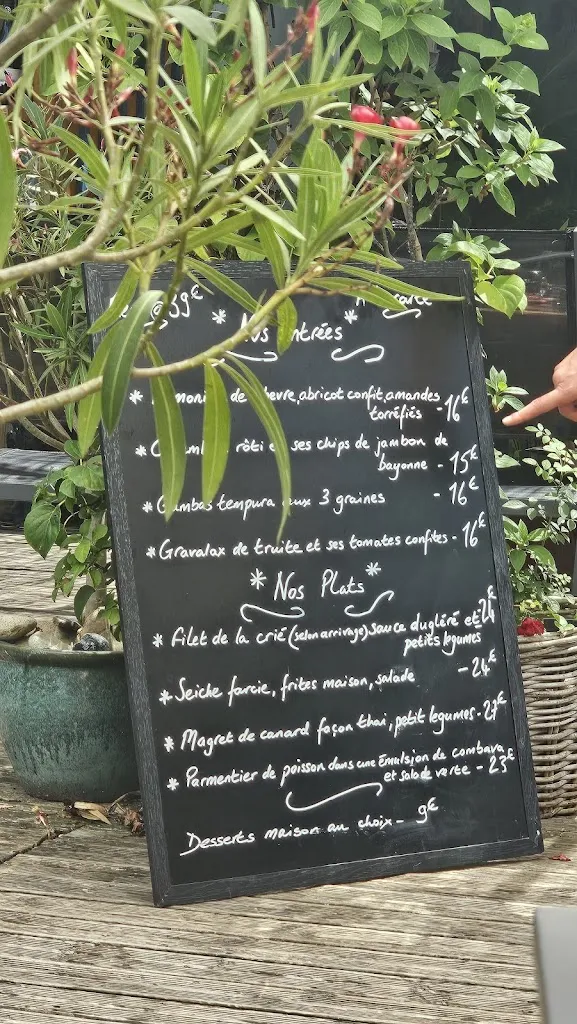 39€
* Nos entrées *
* de chevre, abricot confit, amandes
torréfiés - 16€
* rôti et ses chips de jambon de
bayonne - 15€
* Gambas tempura aux 3 graines - 16€
* Gravalax de truite et ses tomates confites - 16€
* Nos Plats *
* Filet de la crié (selon arrivage) sauce dugléré et 24€
petits legumes
* Seiche farcie, frites maison, salade - 24€
* Magret de canard façon thai, petit legumes - 27€
* Parmentier de poisson dans une émulsion de combava
et salade verte - 23€
Desserts maison au choix - 9€